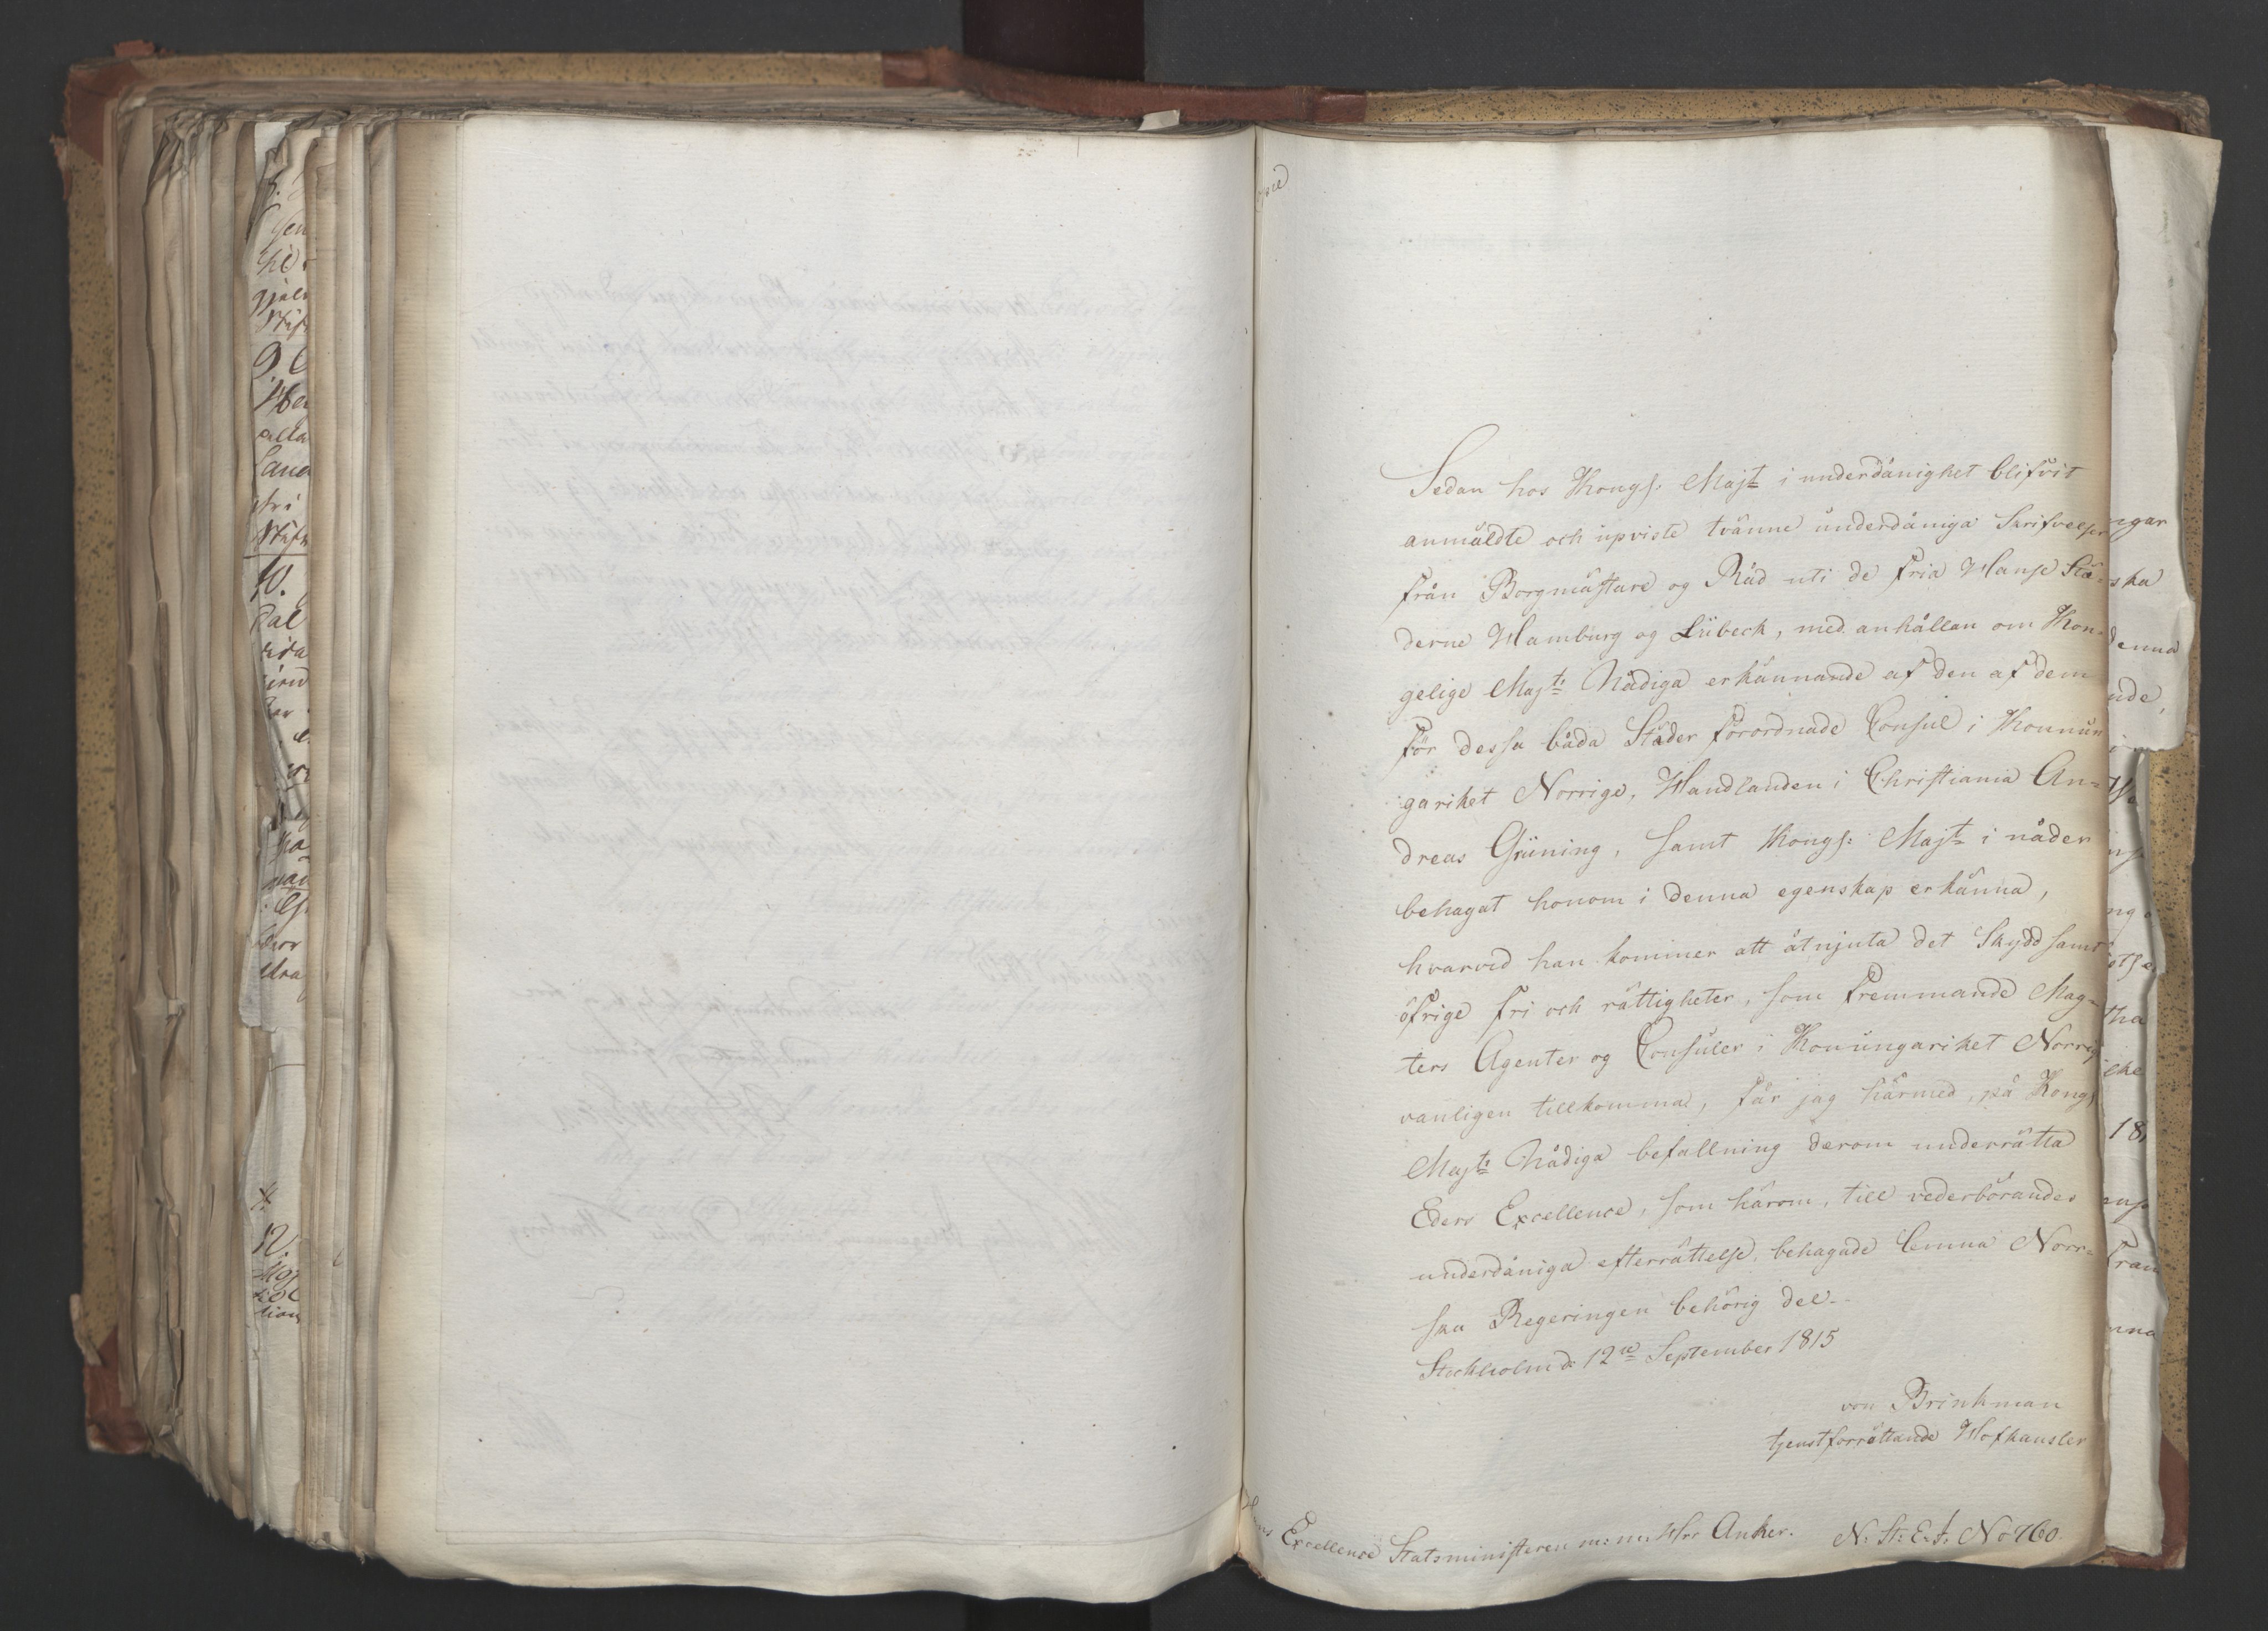 Sedan hos Kongs: Majt i underdånighet blifvit
anmäldte och upviste tvänne underdåniga Skrifvelser
från Borgmästare og Råd uti de fria Hanse Stä-
derne Hamburg og Lübeck, med anhållan om Kon-
gelige Majts Nådiga erkännande af den af dem
för dessa båda Städer förordnade Consul i Konun
gariket Norrige, Handlanden i Christiania An-
dreas Grüning, samt Kongs: Majt i nåder
behagat honom i denna egenskap erkänna,
hvarved han kommer att åtnjuta det Skydd samt
öfrige fri och rättigheter, som fremmande Mag-
ters Agenter og Consuler i Konungariket Norrig
vanligen tillkomma, får jag härmed, på Kongs
Majts Nådiga befallning derom underrätta
Eders Excellence, som härom, till vederbörandes
underdåniga efterrättelse, behagade lemna Norr-
ska Regeringen behörig del.-
Stockholm d: 12te September 1815
von Brinkman
tjenstförrättande Hofkansler
Hans Excellence Statsministeren m: m: Hrr Anker. N: St: E: J: No 760.